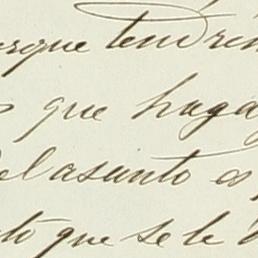 que tendrem
que haga
el asunto es
to que se le